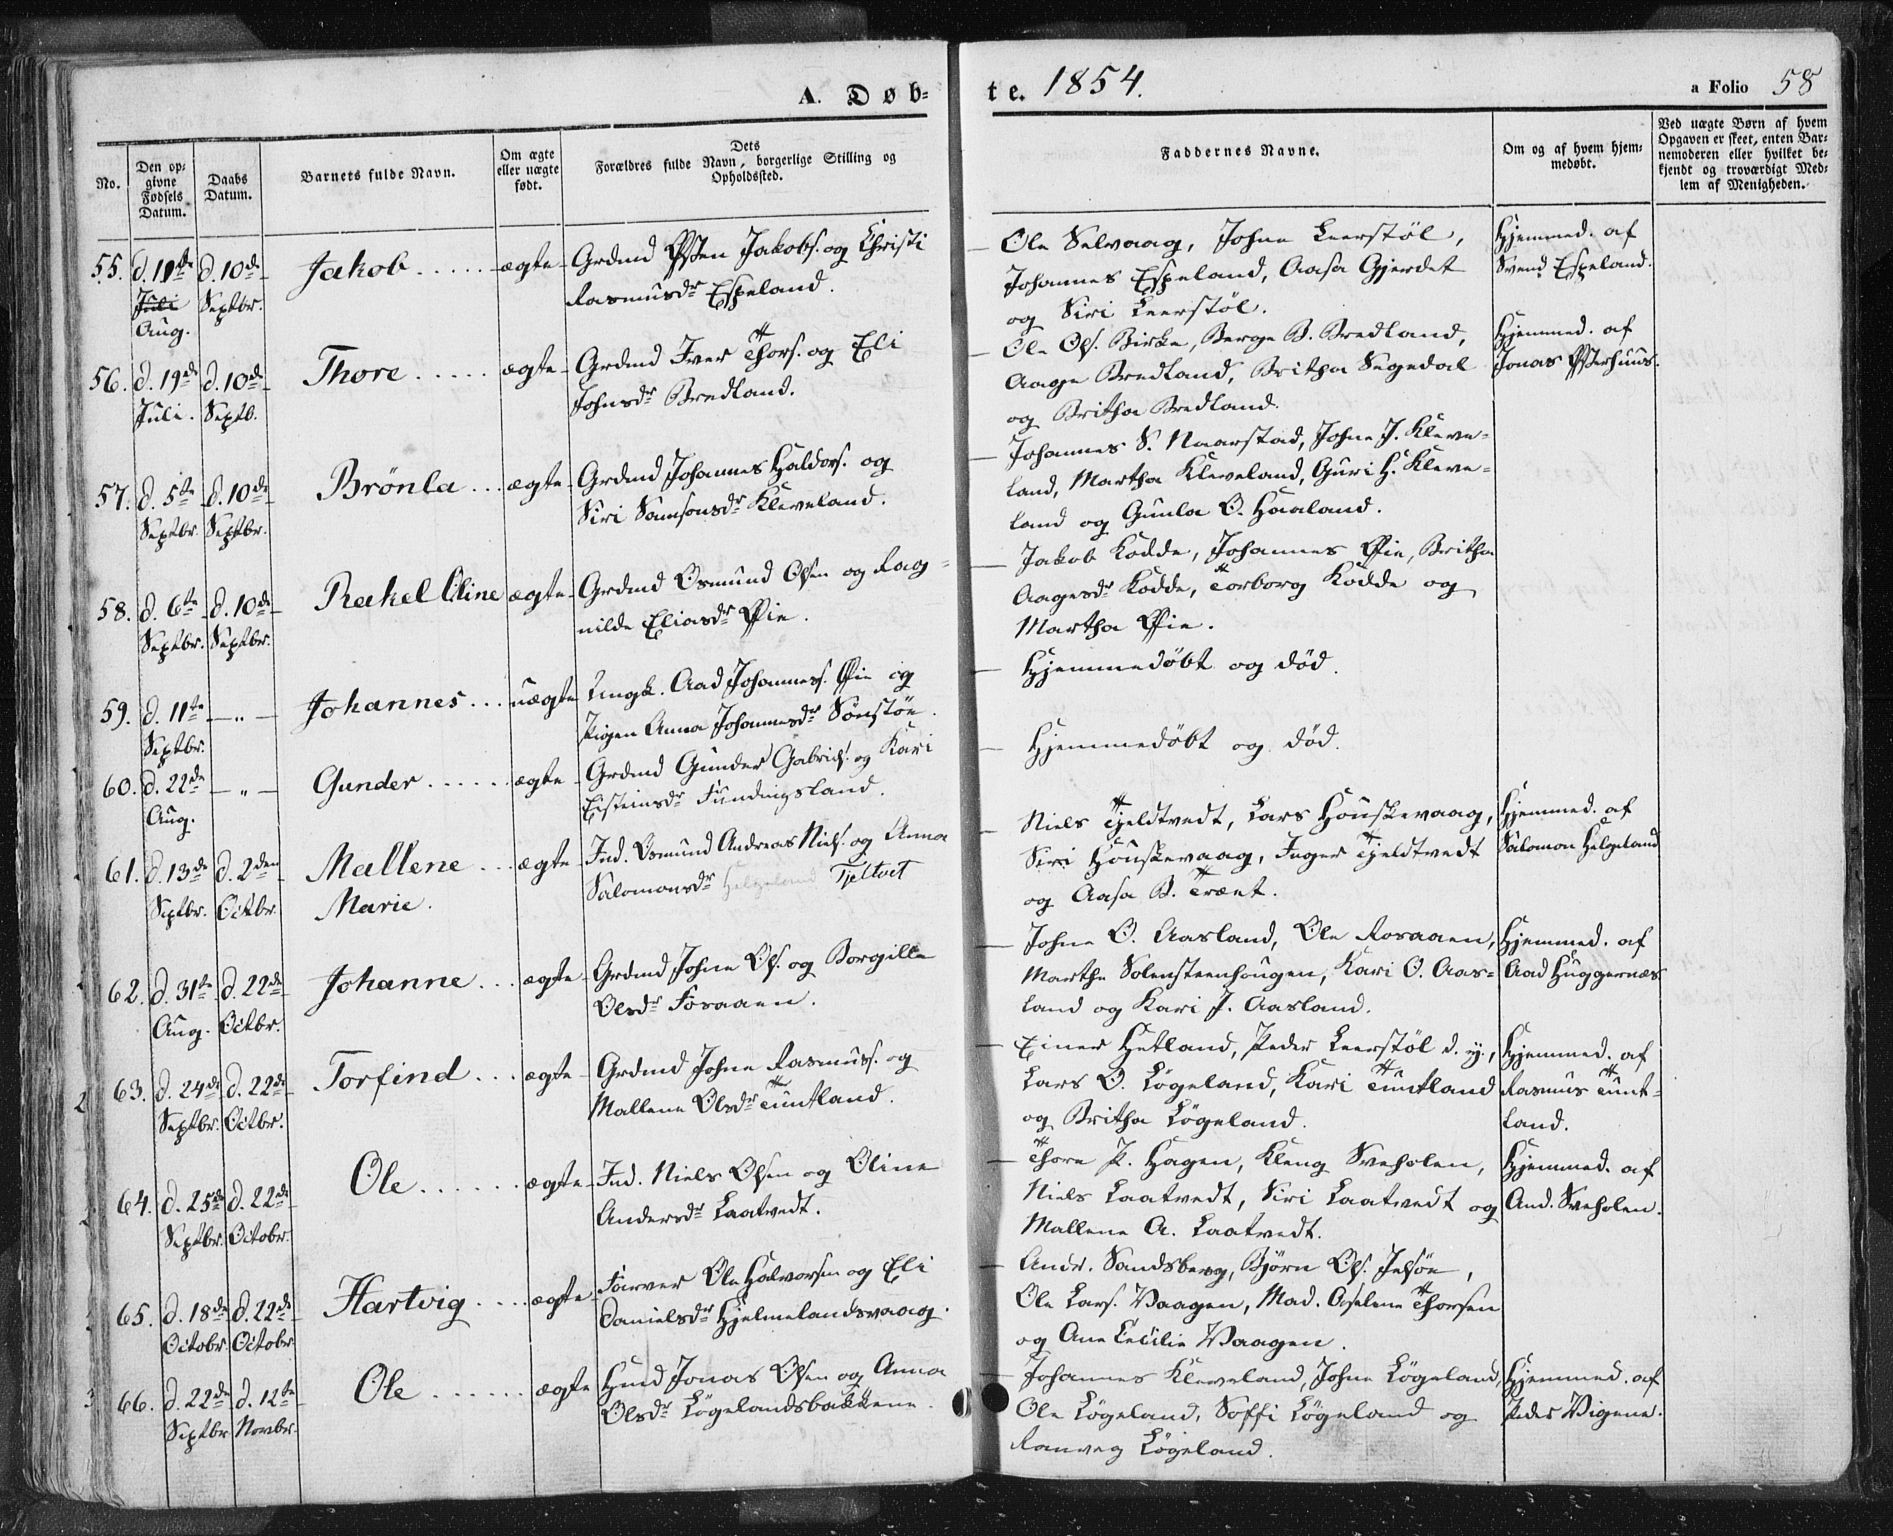 A. Døb-
te. 1854.
a Folio 58
No.
Den opgivne Fødsels Datum.
Daabs Datum.
Barnets fulde Navn.
Om ægte eller uægte født.
Dets Forældres fulde Navn, borgerlige Stilling og Opholdssted.
Faddernes Navne.
Om og af hvem hjemmedøbt.
Ved uægte Børn af hvem Opgaven er skeet, enten Barnemoderen eller hvilket bekjendt og troværdigt Medlem af Menigheden.
55. d. 11te Juli Aug. d. 10de Septbr. Jakob ..... ægte Grdmd Østen Jakobs. og Christi
Rasmusdr Espeland.
Ole Selvaag, Johne Leerstøl,
Johannes Espeland, Aasa Gjerdet
og Siri Leerstøl.
Hjemmed. af
Svend Espeland.
56. d. 19de Juli. d. 10de Septb. Thore ..... ægte Grdmd Iver Thors. og Eli
Johnsdr Bredland.
Ole Ols. Birke, Berge B. Bredland,
Aage Bredland, Britha Segedal
og Britha Bredland.
Hjemmed. af
Jonas Østerhuus.
57. d. 5te Septbr. d. 10de Septbr. Brönla ... ægte Grdmd Johannes Haldors. og
Siri Samsonsdr Kleveland.
Johannes S. Naarstad, Johne J. Kleve-
land, Martha Kleveland, Guri H. Kleve-
land og Gunla O. Haaland.
58. d. 6te Septbr. d. 10de Septbr. Rakel Eline ægte Grdmd Osmund Olsen og Rag-
nilde Eliasdr Øie.
Jakob Kodde, Johannes Øie, Britha
Aagesdr Kodde, Torborg Kodde og
Martha Øie.
59. d. 11te Septbr. — " — Johannes ... uægte Ungk. Aad Johanness. Øie og
Pigen Anna Johannesdr Sönstöe.
Hjemmedöbt og död.
60. d. 22de Aug. — " — Gunder ...... ægte Grdmd Gunder Gabriels. og Kari
Eisteinsdr Fundingsland.
Hjemmedöbt og död.
61. d. 13de Septbr. d. 2den Octbr. Mallene ... ægte Ind. Osmund Andreas Niels. og Anna
Marie. Salomonsdr Helgeland Tjeltvet
Niels Tjeldtvedt, Lars Houskevaag,
Siri Houskevaag, Inger Tjeldtvedt
og Aasa B. Trænt.
Hjemmed. af
Salomon Helgeland
62. d. 31te Aug. d. 22de Octbr. Johanne ... ægte Grdmd Johne Ols. og Borgille
Olsdr Foraaen.
Johne O. Aasland, Ole Rosaaen,
Marthe Solensteenhougen, Kari O. Aas-
land og Kari J. Aasland.
Hjemmed. af
Aad Huggernæs
63. d. 24de Septbr. d. 22de Octbr. Torfind ... ægte Grdmd Johne Rasmuss. og
Mallene Olsdr Tuntland.
Einer Hetland, Peder Leerstøl d. y.,
Lars O. Lögeland, Kari Tuntland
og Britha Lögeland.
Hjemmed. af
Rasmus Tunt-
land.
64. d. 25de Septbr. d. 22de Octobr. Ole ...... ægte Ind. Niels Olsen og Oline
Andersdr Laatvedt.
Thore P. Hagen, Kleng Sveholen,
Niels Laatvedt, Siri Laatvedt og
Mallene A. Laatvedt.
Hjemmed. af
And. Sveholen.
65. d. 18de Octobr. d. 22de Octobr. Hartvig .... ægte Farver Ole Halvorsen og Eli
Danielsdr Hjelmelandsvaag.
Andr. Sandsberg, Bjørn Ols. Jelsöe,
Ole Lars. Vaagen, Mad. Aselene Thorsen
og Ane Cecilie Vaagen.
66. d. 22de Septbr d. 12te Novbr. Ole ...... ægte Hmd Jonas Olsen og Anna
Olsdr Lögelandsbakkene.
Johannes Kleveland, Johne Lögeland,
Ole Lögeland, Soffi Lögeland og
Ranveg Lögeland.
Hjemmed. af
Peder Vigene.